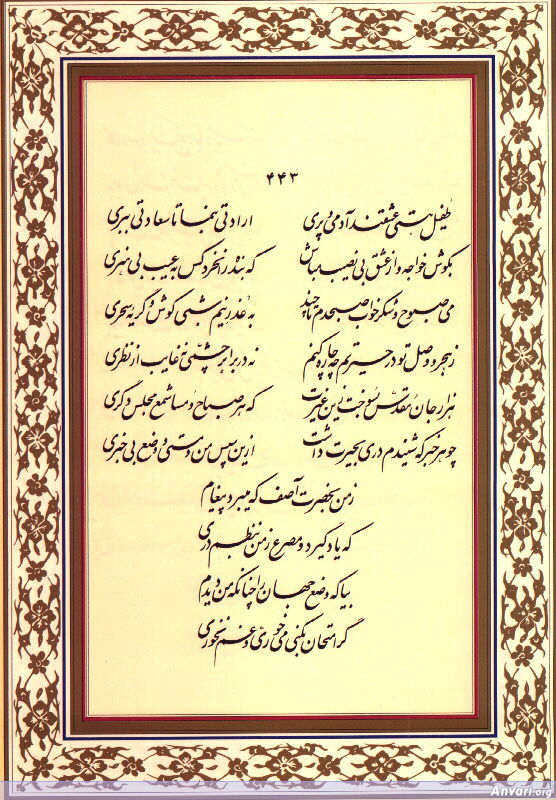 ۴۴۳
طفیل هستی عشقند آدمی و پری ارادتی بنما تا سعادتی ببری
بکوش خواجه و از عشق بی نصیب مباش که بنده را نخرد کس به عیب بی هنری
می صبوح و شکرخواب صبحدم تا چند به عذر نیم شبی کوش و گریه سحری
ز هجر و وصل تو در حیرتم چه چاره کنم نه در برابر چشمی نه غایب از نظری
هزار جان مقدّس بسوخت زین غیرت که هر صباح و مسا شمع مجلس دگری
چو هر خبر که شنیدم دری بحیرت داشت ازین سپس من و مستی و وضع بی خبری
ز من بحضرت آصف که میبرد پیغام
که یاد گیرد و مصرع ز من بنظم دری
بیا که وضع جهان را چنانکه من دیدم
گر امتحان بکنی می خوری و غم نخوری
Anvari.org